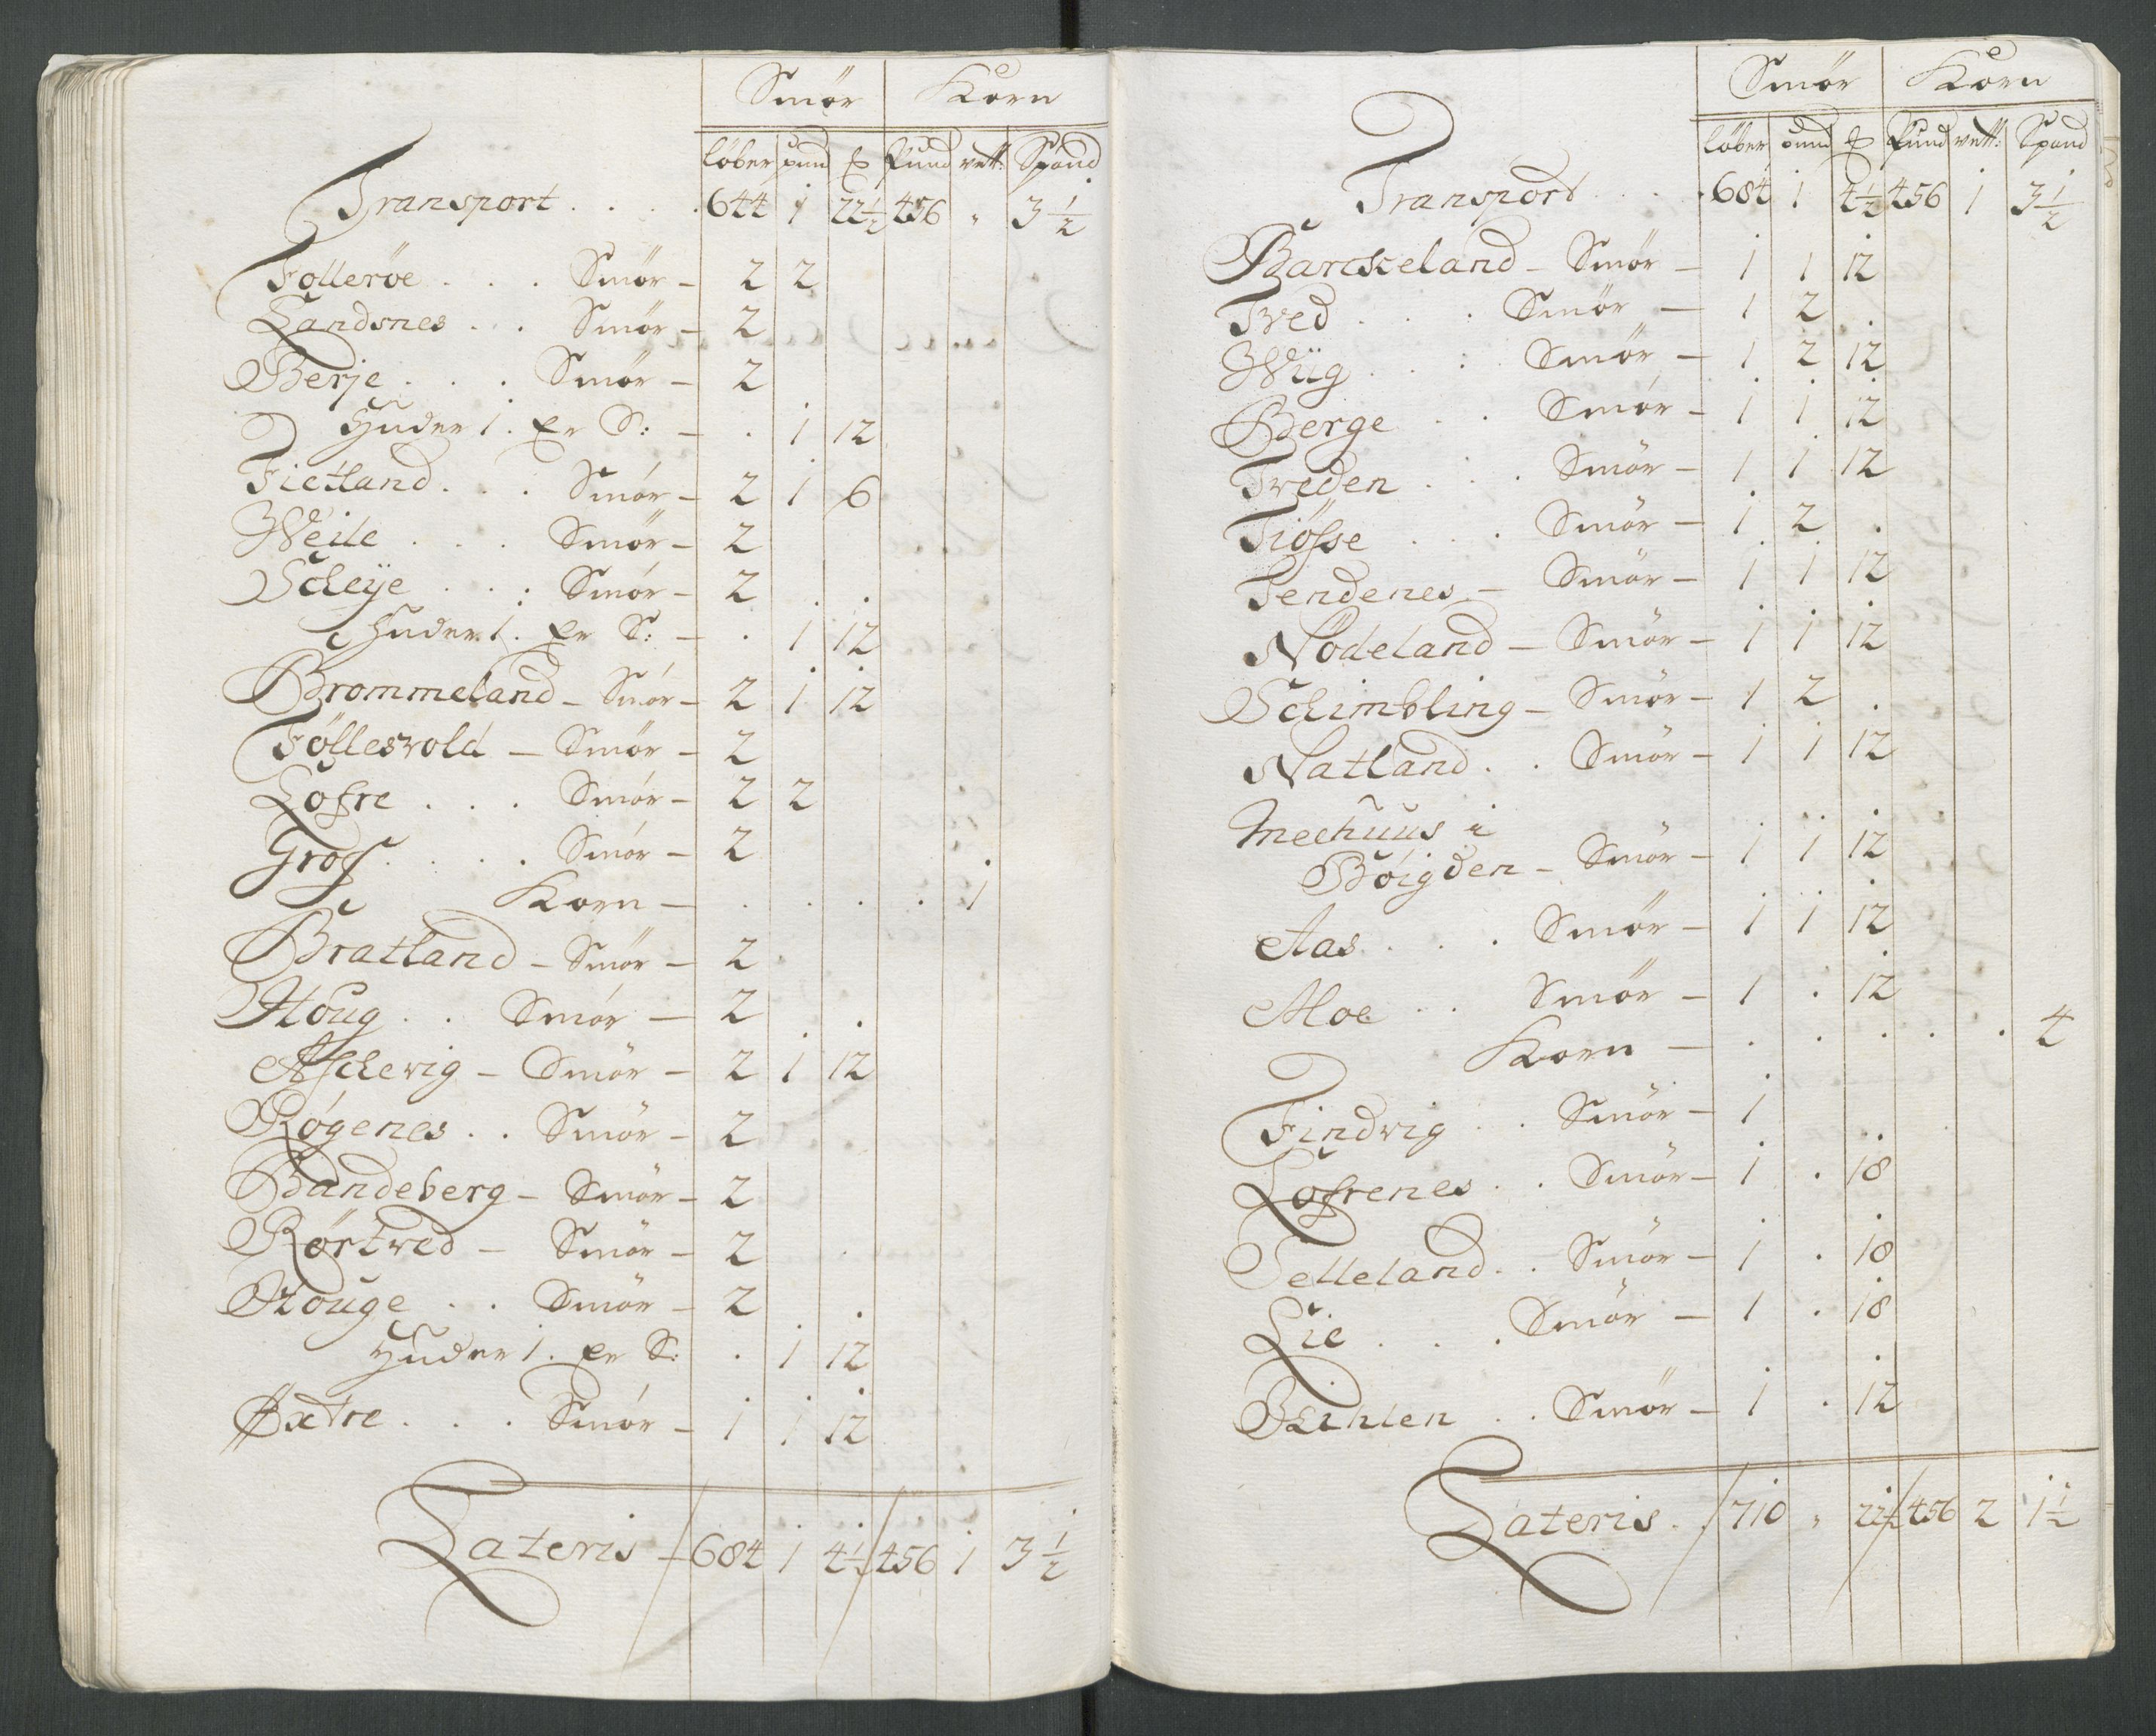 Smör Korn
löber pund ℔ Pund vett: Spand
Transport . . . . 644 1 22½ 456 " 3½
Fölleröe . . . Smör - 2 2
Landsnes . . . Smör - 2
Berje . . . Smör - 2
Huder 1. er S: - . 1 12
Fietland . . . Smör - 2 1 6
Weile . . . Smör - 2
Scheÿe . . . Smör - 2 . .
Huder 1. er S: - . 1 12
Brommeland - Smör - 2 1 12
Föllesvold - Smör - 2
Lofre . . . Smör - 2 2
Grof . . . . Smör - 2
Korn - . . . . 1
Bratland - Smör - 2
Houg . . Smör - 2
Aschevig - Smör - 2 1 12
Røgenes . . Smör - 2
Bandeberg - Smör - 2
Rörtved - Smör - 2
Houge . . Smör - 2 .
Huder 1. er S: . 1 12
Extre . . . Smör - 1 1 12
Lateris - 684 1 4½ 456 1 3½
Smör Korn
löber pund ℔ Pund vett: Spand
Transport . . . 684 1 4½ 456 1 3½
Barckeland - Smör - 1 1 12
Tved . . . Smör - 1 2 .
Wiig . . . Smör - 1 2 12
Berge . . Smör - 1 1 12
Tveden . . . Smör - 1 1 12
Tiösse . . . Smör - 1 2 .
Tendenes - Smör - 1 1 12
Nödeland - Smör - 1 1 12
Schimbling - Smör - 1 2 .
Natland . . Smör - 1 1 12
Mechuus i
Böigden - Smör - 1 1 12
Aas . . . Smör - 1 1 12
Moe . . Smör - 1 . 12
Korn - . . . . . 4
Findvig . . Smör - 1
Lofrenes . . Smör - 1 . 18
Telleland . . Smör - 1 . 18
Lie . . . Smör - 1 . 18
Smör - 1 . 12
Lateris . 710 " 22½ 456 2 1½